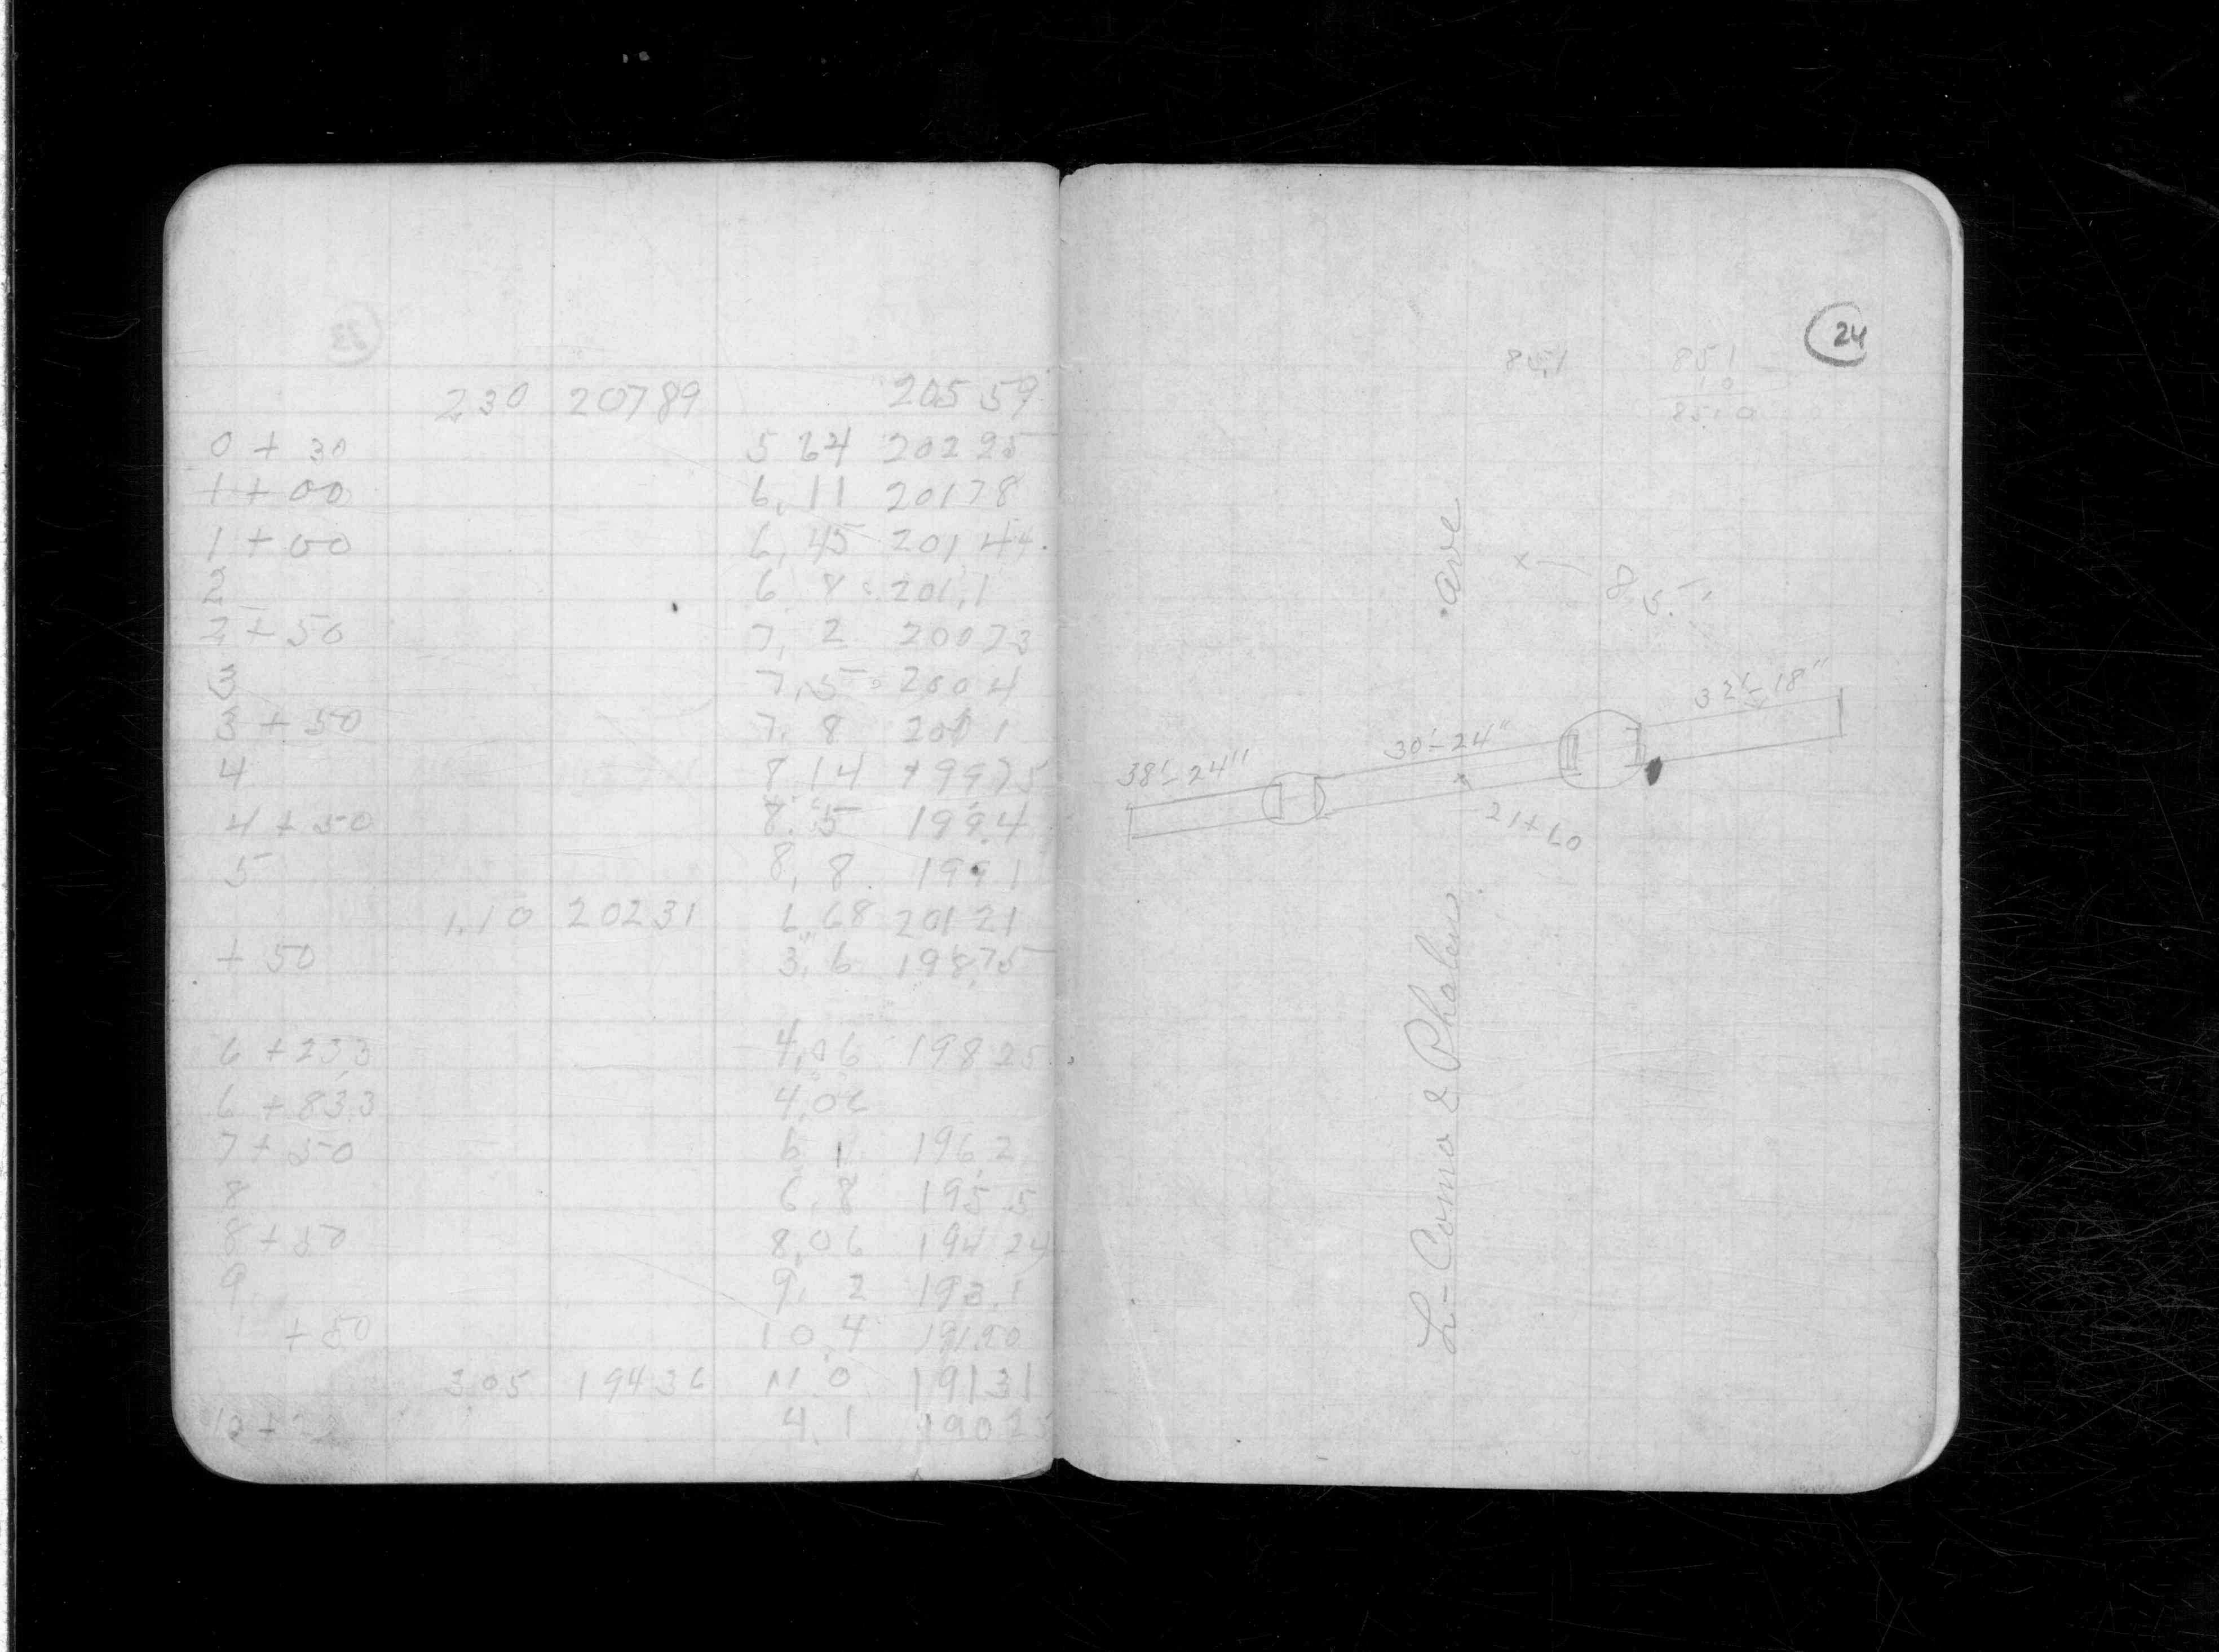 230 20789 20559
0 + 30 5 64 20225
1 + 00 6.11 20178
1 + 00 6.45 20144
2 6 8 201.1
2 + 50 7. 2 20073
3 7.5 2004
3 + 50 7. 8 2001
4 8 14 19975
4 + 50 8. 5 199.4
5 8. 8 199 1
1.10 20231 6.68 20121
+ 50 3. 6 198.75
6 + 233 4.06 19825
6 + 833 4.06
7 + 50 6 1 196.2
8 6. 8 195.5
8 + 50 8.06 194 24
9 9. 2 193.1
+ 50 10.4
3.05 19436 11.0 19131
4.1
24
85.1 851
10
8510
8.5
32'-18"
30'-24"
38'-24"
21+60
Como & Phalen ave